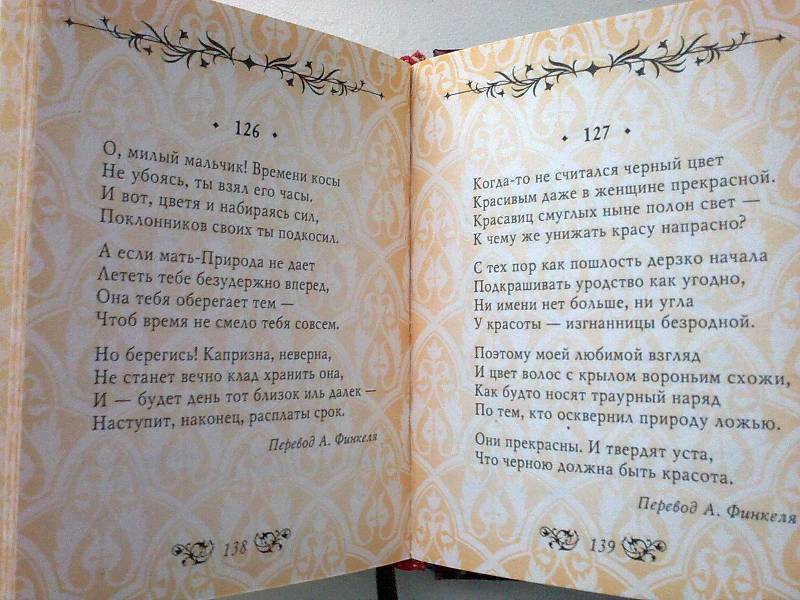 126
О, милый мальчик! Времени косы
Не убоясь, ты взял его часы.
И вот, цветя и набираясь сил,
Поклонников своих ты подкосил.
А если мать-Природа не дает
Лететь тебе безудержно вперед,
Она тебя оберегает тем —
Чтоб время не смело тебя совсем.
Но берегись! Капризна, неверна,
Не станет вечно клад хранить она,
И — будет день тот близок иль далек —
Наступит, наконец, расплаты срок.
Перевод А. Финкеля
138
127
Когда-то не считался черный цвет
Красивым даже в женщине прекрасной.
Красавиц смуглых ныне полон свет —
К чему же унижать красу напрасно?
С тех пор как пошлость дерзко начала
Подкрашивать уродство как угодно,
Ни имени нет больше, ни угла
У красоты — изгнанницы безродной.
Поэтому моей любимой взгляд
И цвет волос с крылом вороньим схожи,
Как будто носят траурный наряд
По тем, кто осквернил природу ложью.
Они прекрасны. И твердят уста,
Что черною должна быть красота.
Перевод А. Финкеля
139